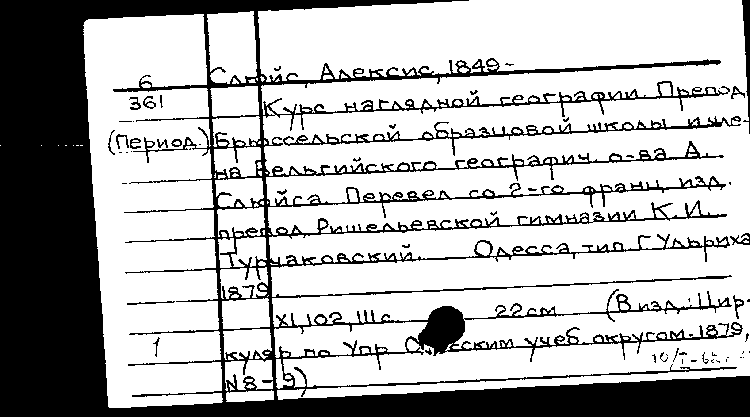 6 Слюйс, Алексис, 1849-
361 Курс наглядной географии Препод.
(Период.) Брюссельской образцовой школы и чле-
на Бельгийского географич. о-ва А.
Слюйса. Перевел со 2-го франц. изд.
препод. Ришельевской гимназии К.И.
Турчаковский. Одесса, тип. Г. Ульриха
1879.
XI, 102, III с. 22см (В изд.: Цир-
1 куляр по Упр. Одесским учеб. округом. 1879,
N8-9).